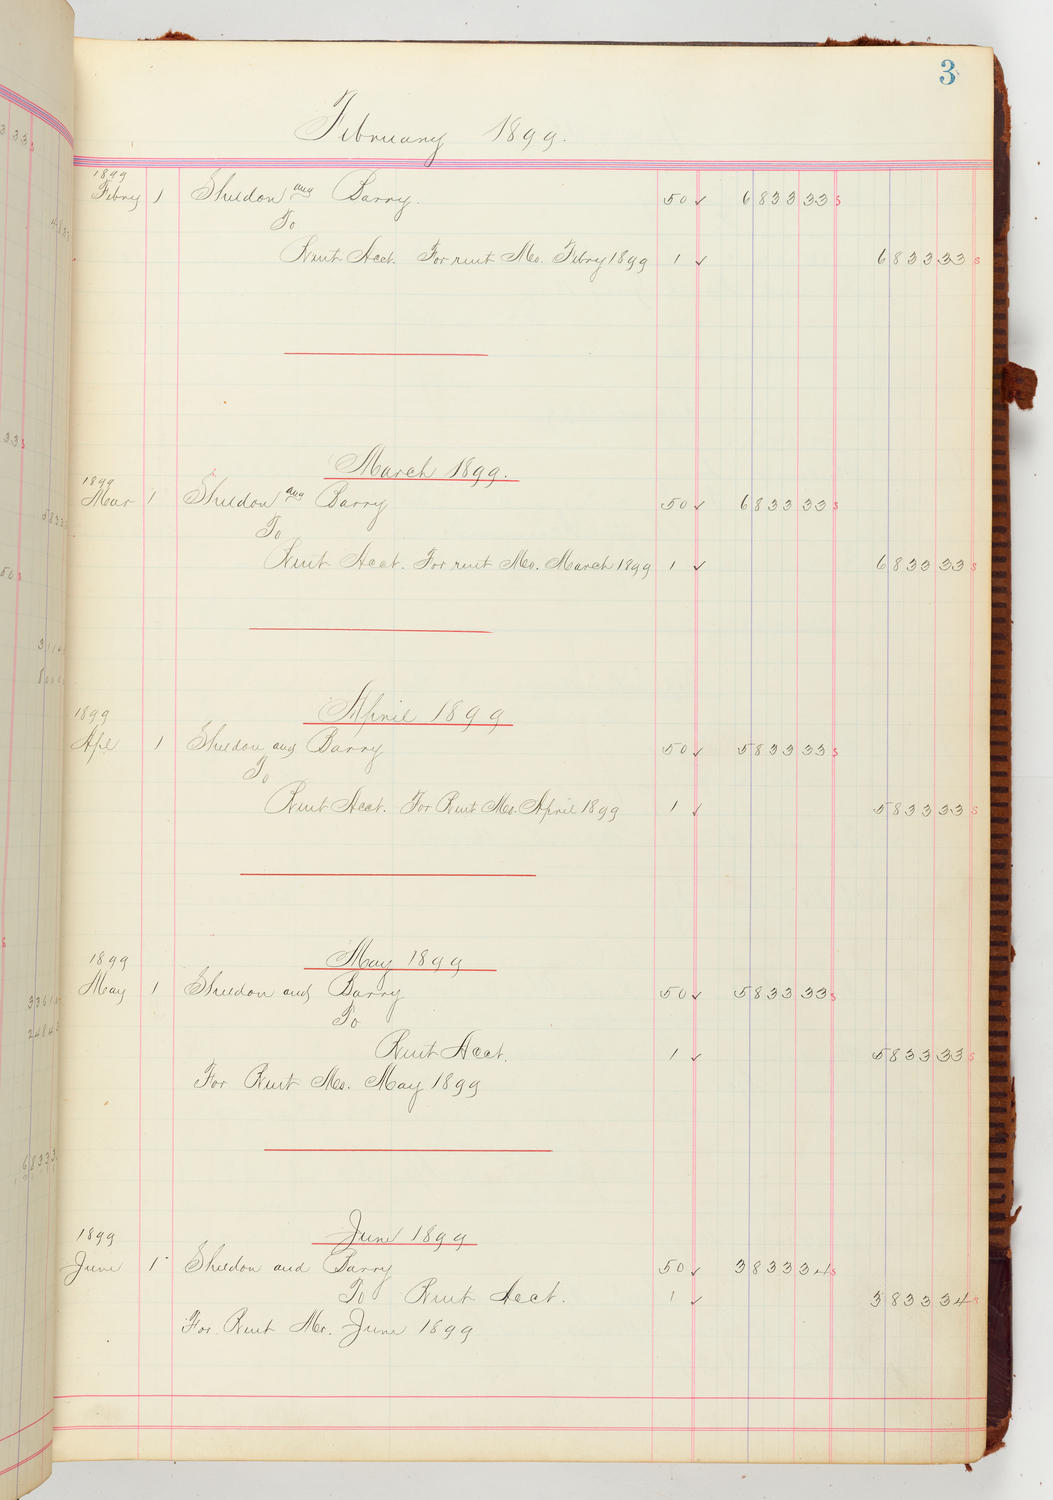 3
February 1899.
1899
Febry 1 Sheldon and Barry. 50 ✓ 6833 33 s
To
Rent Acct. For rent Mo. Febry 1899 1 ✓ 6833 33 s
March 1899.
1899
Mar 1 Sheldon and Barry 50 ✓ 6833 33 s
To
Rent Acct. For rent Mo. March 1899 1 ✓ 6833 33 s
April 1899
1899
Apl 1 Sheldon and Barry 50 ✓ 5833 33 s
To
Rent Acct. For Rent Mo. April 1899 1 ✓ 5833 33 s
May 1899
1899
May 1 Sheldon and Barry 50 ✓ 5833 33 s
To
Rent Acct. 1 ✓ 5833 33 s
For Rent Mo. May 1899
June 1899
1899
June 1 Sheldon and Barry 50 ✓ 3833 34 s
To Rent Acct. 1 ✓ 3833 34 s
For Rent Mo. June 1899